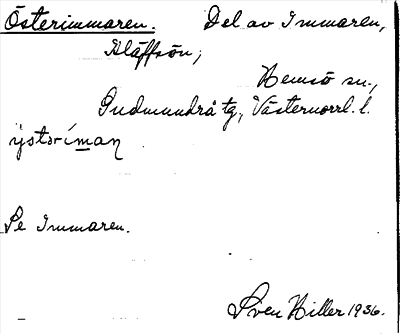 Österimmaren. Del av Immaren,
Kläffsön;
Hemsö sn.,
Gudmundrå tg, Västernorrl. l.
ystəríman
Se Immaren.
Sven Hiller 1936.